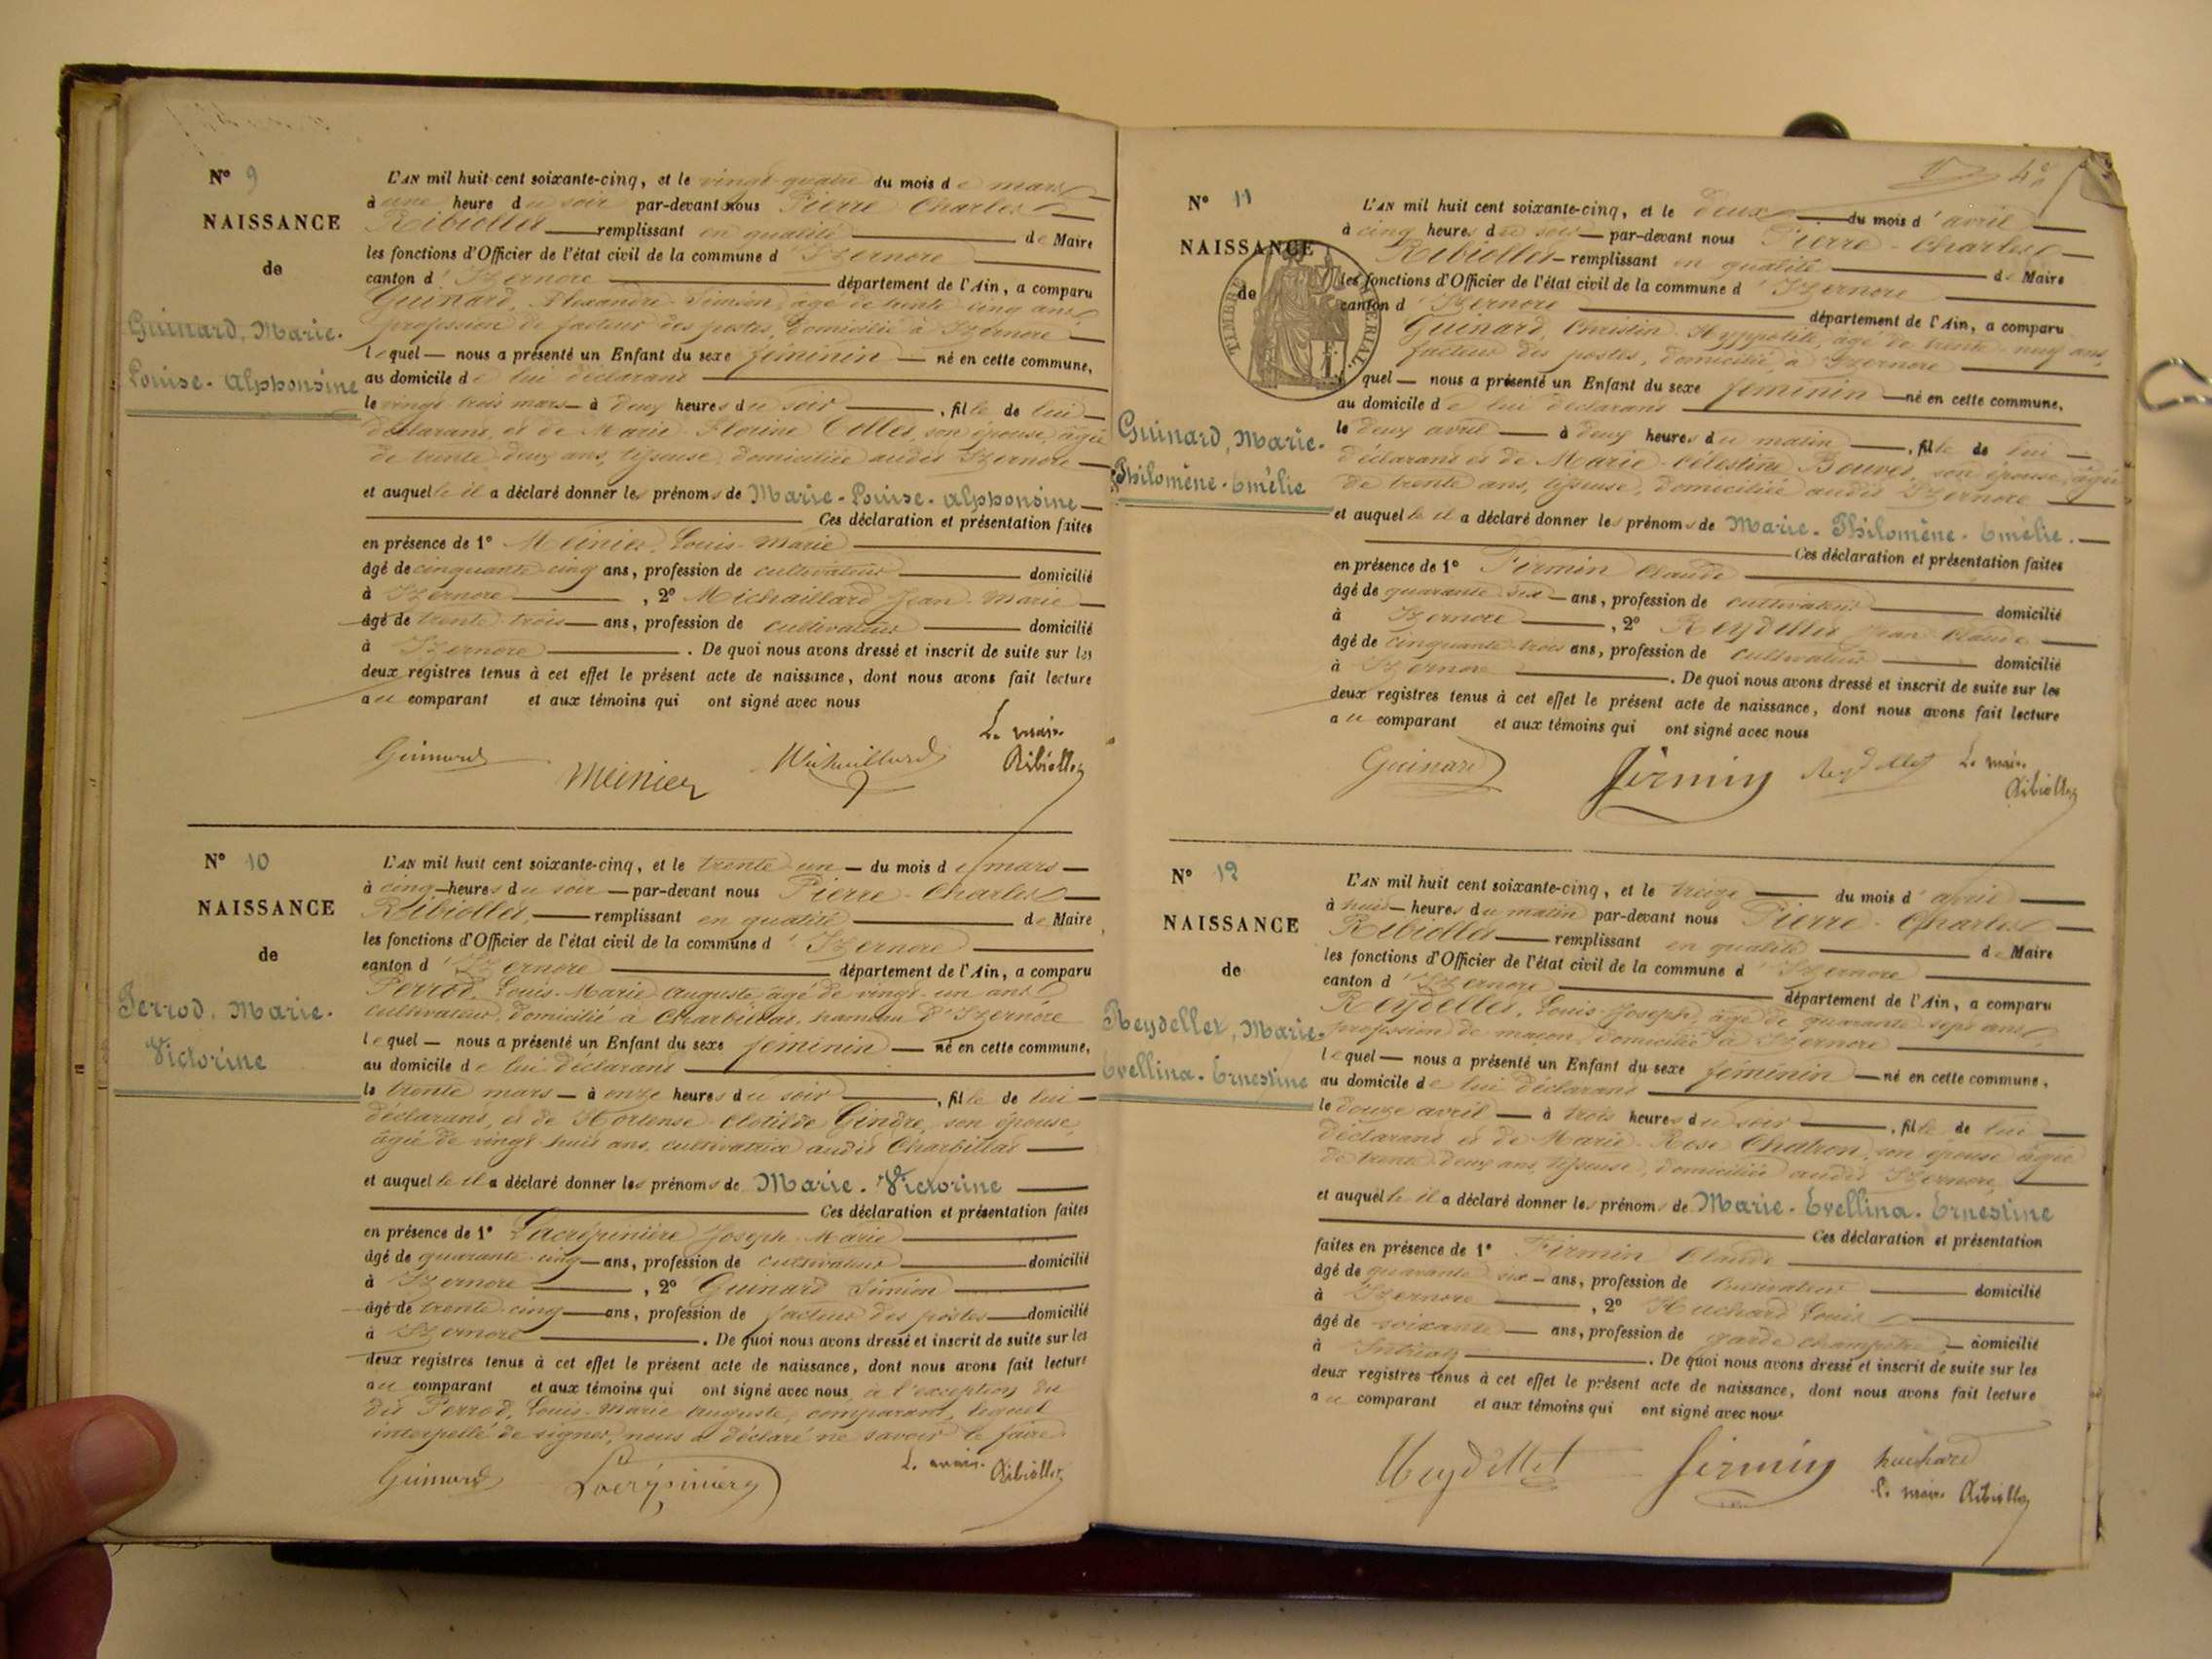 N° 9
NAISSANCE
de
Guinard, Marie-
Louise-Alphonsine
L'AN mil huit cent soixante-cinq, et le vingt-quatre du mois de mars
à une heure du soir par-devant nous Pierre-Charles
Ribiollet remplissant en qualité de Maire
les fonctions d'Officier de l'état civil de la commune d'Izernore
canton d'Izernore département de l'Ain, a comparu
Guinard, Alexandre-Siméon, âgé de trente-cinq ans
profession de facteur des postes, domicilié à Izernore
lequel nous a présenté un Enfant du sexe féminin né en cette commune,
au domicile de lui déclarant
le vingt trois mars à deux heures du soir, fille de lui
déclarant, et de Marie-Florine Collet, son épouse, âgée
de trente-deux ans, tisseuse, domiciliée audit Izernore
et auquelle il a déclaré donner les prénoms de Marie-Louise-Alphonsine
Ces déclaration et présentation faites
en présence de 1° Meinier, Louis-Marie
âgé de cinquante-cinq ans, profession de cultivateur domicilié
à Izernore, 2° Michaillard Jean-Marie
âgé de trente-trois ans, profession de cultivateur domicilié
à Izernore. De quoi nous avons dressé et inscrit de suite sur les
deux registres tenus à cet effet le présent acte de naissance, dont nous avons fait lecture
au comparant et aux témoins qui ont signé avec nous
Guinard Meinier Michaillard Le maire Ribiollet
N° 10
NAISSANCE
de
Perrod, Marie-
Victorine
L'AN mil huit cent soixante-cinq, et le trente-un du mois de mars
à cinq heures du soir par-devant nous Pierre-Charles
Ribiollet, remplissant en qualité de Maire
les fonctions d'Officier de l'état civil de la commune d'Izernore
canton d'Izernore département de l'Ain, a comparu
Perrod, Louis-Marie-Auguste, âgé de vingt-un ans
cultivateur, domicilié à Charbillat, hameau d'Izernore
lequel nous a présenté un Enfant du sexe féminin né en cette commune,
au domicile de lui déclarant
le trente mars à onze heures du soir, fille de lui
déclarant, et de Hortense-Clotilde Gindre, son épouse,
âgée de vingt-huit ans, cultivatrice audit Charbillat
et auquelle il a déclaré donner les prénoms de Marie-Victorine
Ces déclaration et présentation faites
en présence de 1° Lacrépinière Joseph-Marie
âgé de quarante-cinq ans, profession de cultivateur domicilié
à Izernore, 2° Guinard Siméon
âgé de trente-cinq ans, profession de facteur des postes domicilié
à Izernore. De quoi nous avons dressé et inscrit de suite sur les
deux registres tenus à cet effet le présent acte de naissance, dont nous avons fait lecture
au comparant et aux témoins qui ont signé avec nous à l'exception du
dit Perrod, Louis-Marie Auguste, comparant, lequel
interpellé de signer, nous a déclaré ne savoir le faire
Guinard Lacrépinière Le maire Ribiollet
4e
N° 11
NAISSANCE
de
TIMBRE IMPERIAL
Guinard, Marie-
Philomène-Emélie
L'AN mil huit cent soixante-cinq, et le deux du mois d'avril
à cinq heures du soir par-devant nous Pierre-Charles
Ribiollet remplissant en qualité de Maire
les fonctions d'Officier de l'état civil de la commune d'Izernore
canton d'Izernore département de l'Ain, a comparu
Guinard, Hyppolite, âgé de trente-neuf ans,
facteur des postes, domicilié à Izernore
quel nous a présenté un Enfant du sexe féminin né en cette commune,
au domicile de lui déclarant
le deux avril à deux heures du matin, fille de lui
déclarant et de Marie-Célestine Bouvet, son épouse, âgée
de trente ans, tisseuse, domiciliée audit Izernore
et auquelle il a déclaré donner les prénoms de Marie-Philomène-Emélie.
Ces déclaration et présentation faites
en présence de 1° Firmin Claude
âgé de quarante-six ans, profession de cultivateur domicilié
à Izernore, 2° Reydellet Jean-Claude
âgé de cinquante-trois ans, profession de cultivateur domicilié
à Izernore. De quoi nous avons dressé et inscrit de suite sur les
deux registres tenus à cet effet le présent acte de naissance, dont nous avons fait lecture
au comparant et aux témoins qui ont signé avec nous
Guinard Firmin Reydellet Le maire Ribiollet
N° 12
NAISSANCE
de
Reydellet, Marie-
Evellina-Ernestine
L'AN mil huit cent soixante-cinq, et le treize du mois d'avril
à huit heures du matin par-devant nous Pierre-Charles
Ribiollet remplissant en qualité de Maire
les fonctions d'Officier de l'état civil de la commune d'Izernore
canton d'Izernore département de l'Ain, a comparu
Reydellet, Louis-Joseph, âgé de quarante-sept ans
profession de maçon, domicilié à Izernore
lequel nous a présenté un Enfant du sexe féminin né en cette commune,
au domicile de lui déclarant
le douze avril à trois heures du soir, fille de lui
déclarant et de Marie-Rose Chatron, son épouse âgée
de trente-deux ans, tisseuse, domiciliée audit Izernore,
et auquelle il a déclaré donner les prénoms de Marie-Evellina-Ernestine
Ces déclaration et présentation
faites en présence de 1° Firmin Claude
âgé de quarante-six ans, profession de cultivateur domicilié
à Izernore, 2° Huchard Louis
âgé de soixante ans, profession de garde champêtre, domicilié
à Intriat. De quoi nous avons dressé et inscrit de suite sur les
deux registres tenus à cet effet le présent acte de naissance, dont nous avons fait lecture
au comparant et aux témoins qui ont signé avec nous
Reydellet Firmin huchard
Le maire Ribiollet